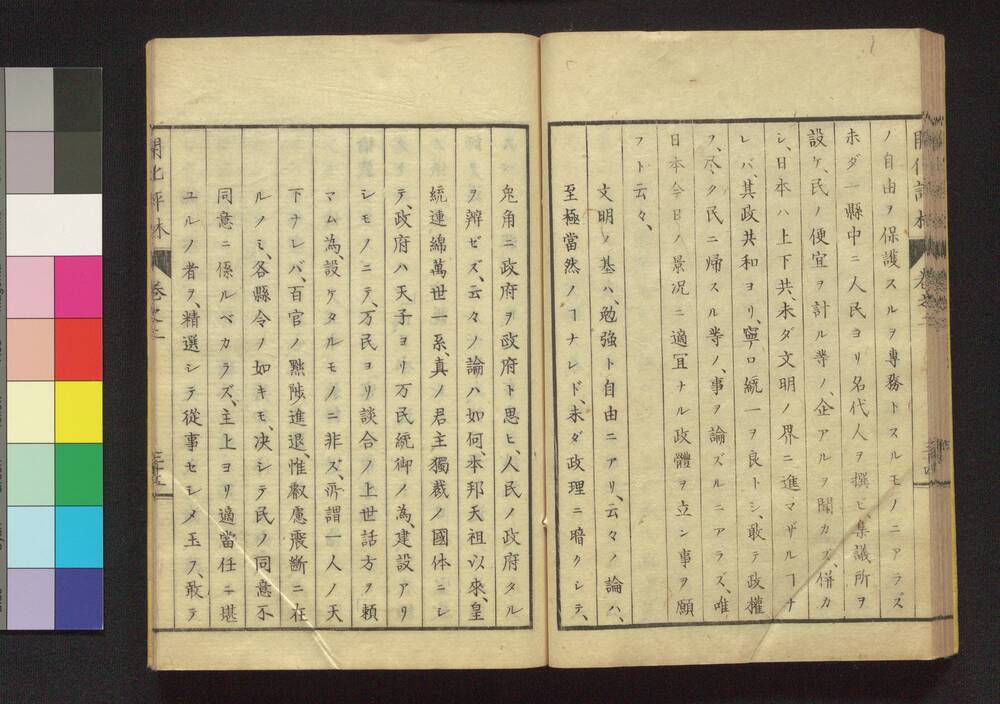 ノ自由ヲ保護スルヲ専務トスルモノニアラズ
未ダ一縣中ニ人民ヨリ名代人ヲ撰ビ集議所ヲ
設ケ、民ノ便宜ヲ計ル等ノ、企アルヲ聞カズ、併カ
シ、日本ハ上下共、未ダ文明ノ界ニ進マザルヿナ
レバ、其政共和ヨリ、寧ロ統一ヲ良トシ、敢テ政權
ヲ、尽ク民ニ帰スル等ノ、事ヲ論ズルニアラズ、唯
日本今日ノ景况ニ適冝ナル政體ヲ立ン事ヲ願
フト云々、
文明ノ基ハ、勉強ト自由ニアリ、云々ノ論ハ、
至極當然ノヿナレド、未ダ政理ニ暗クシテ、
兎角ニ政府ヲ政府ト思ヒ、人民ノ政府タル
ヲ辨ゼズ、云々ノ論ハ如何、本邦天祖以來、皇
統連綿萬世一系、真ノ君主獨裁ノ國体ニシ
テ、政府ハ天子ヨリ万民統御ノ為、建設アリ
シモノニテ、万民ヨリ談合ノ上世話方ヲ頼
マム為、設ケタルモノニ非ズ、所謂一人ノ天
下ナレバ、百官ノ黜陟進退、惟叡慮震断ニ在
ルノミ、各縣令ノ如キモ、决シテ民ノ同意不
同意ニ係ルベカラズ、主上ヨリ適當任ニ堪
ユルノ者ヲ、精選シテ從事セシメ玉フ、敢テ
開化評林
卷之二